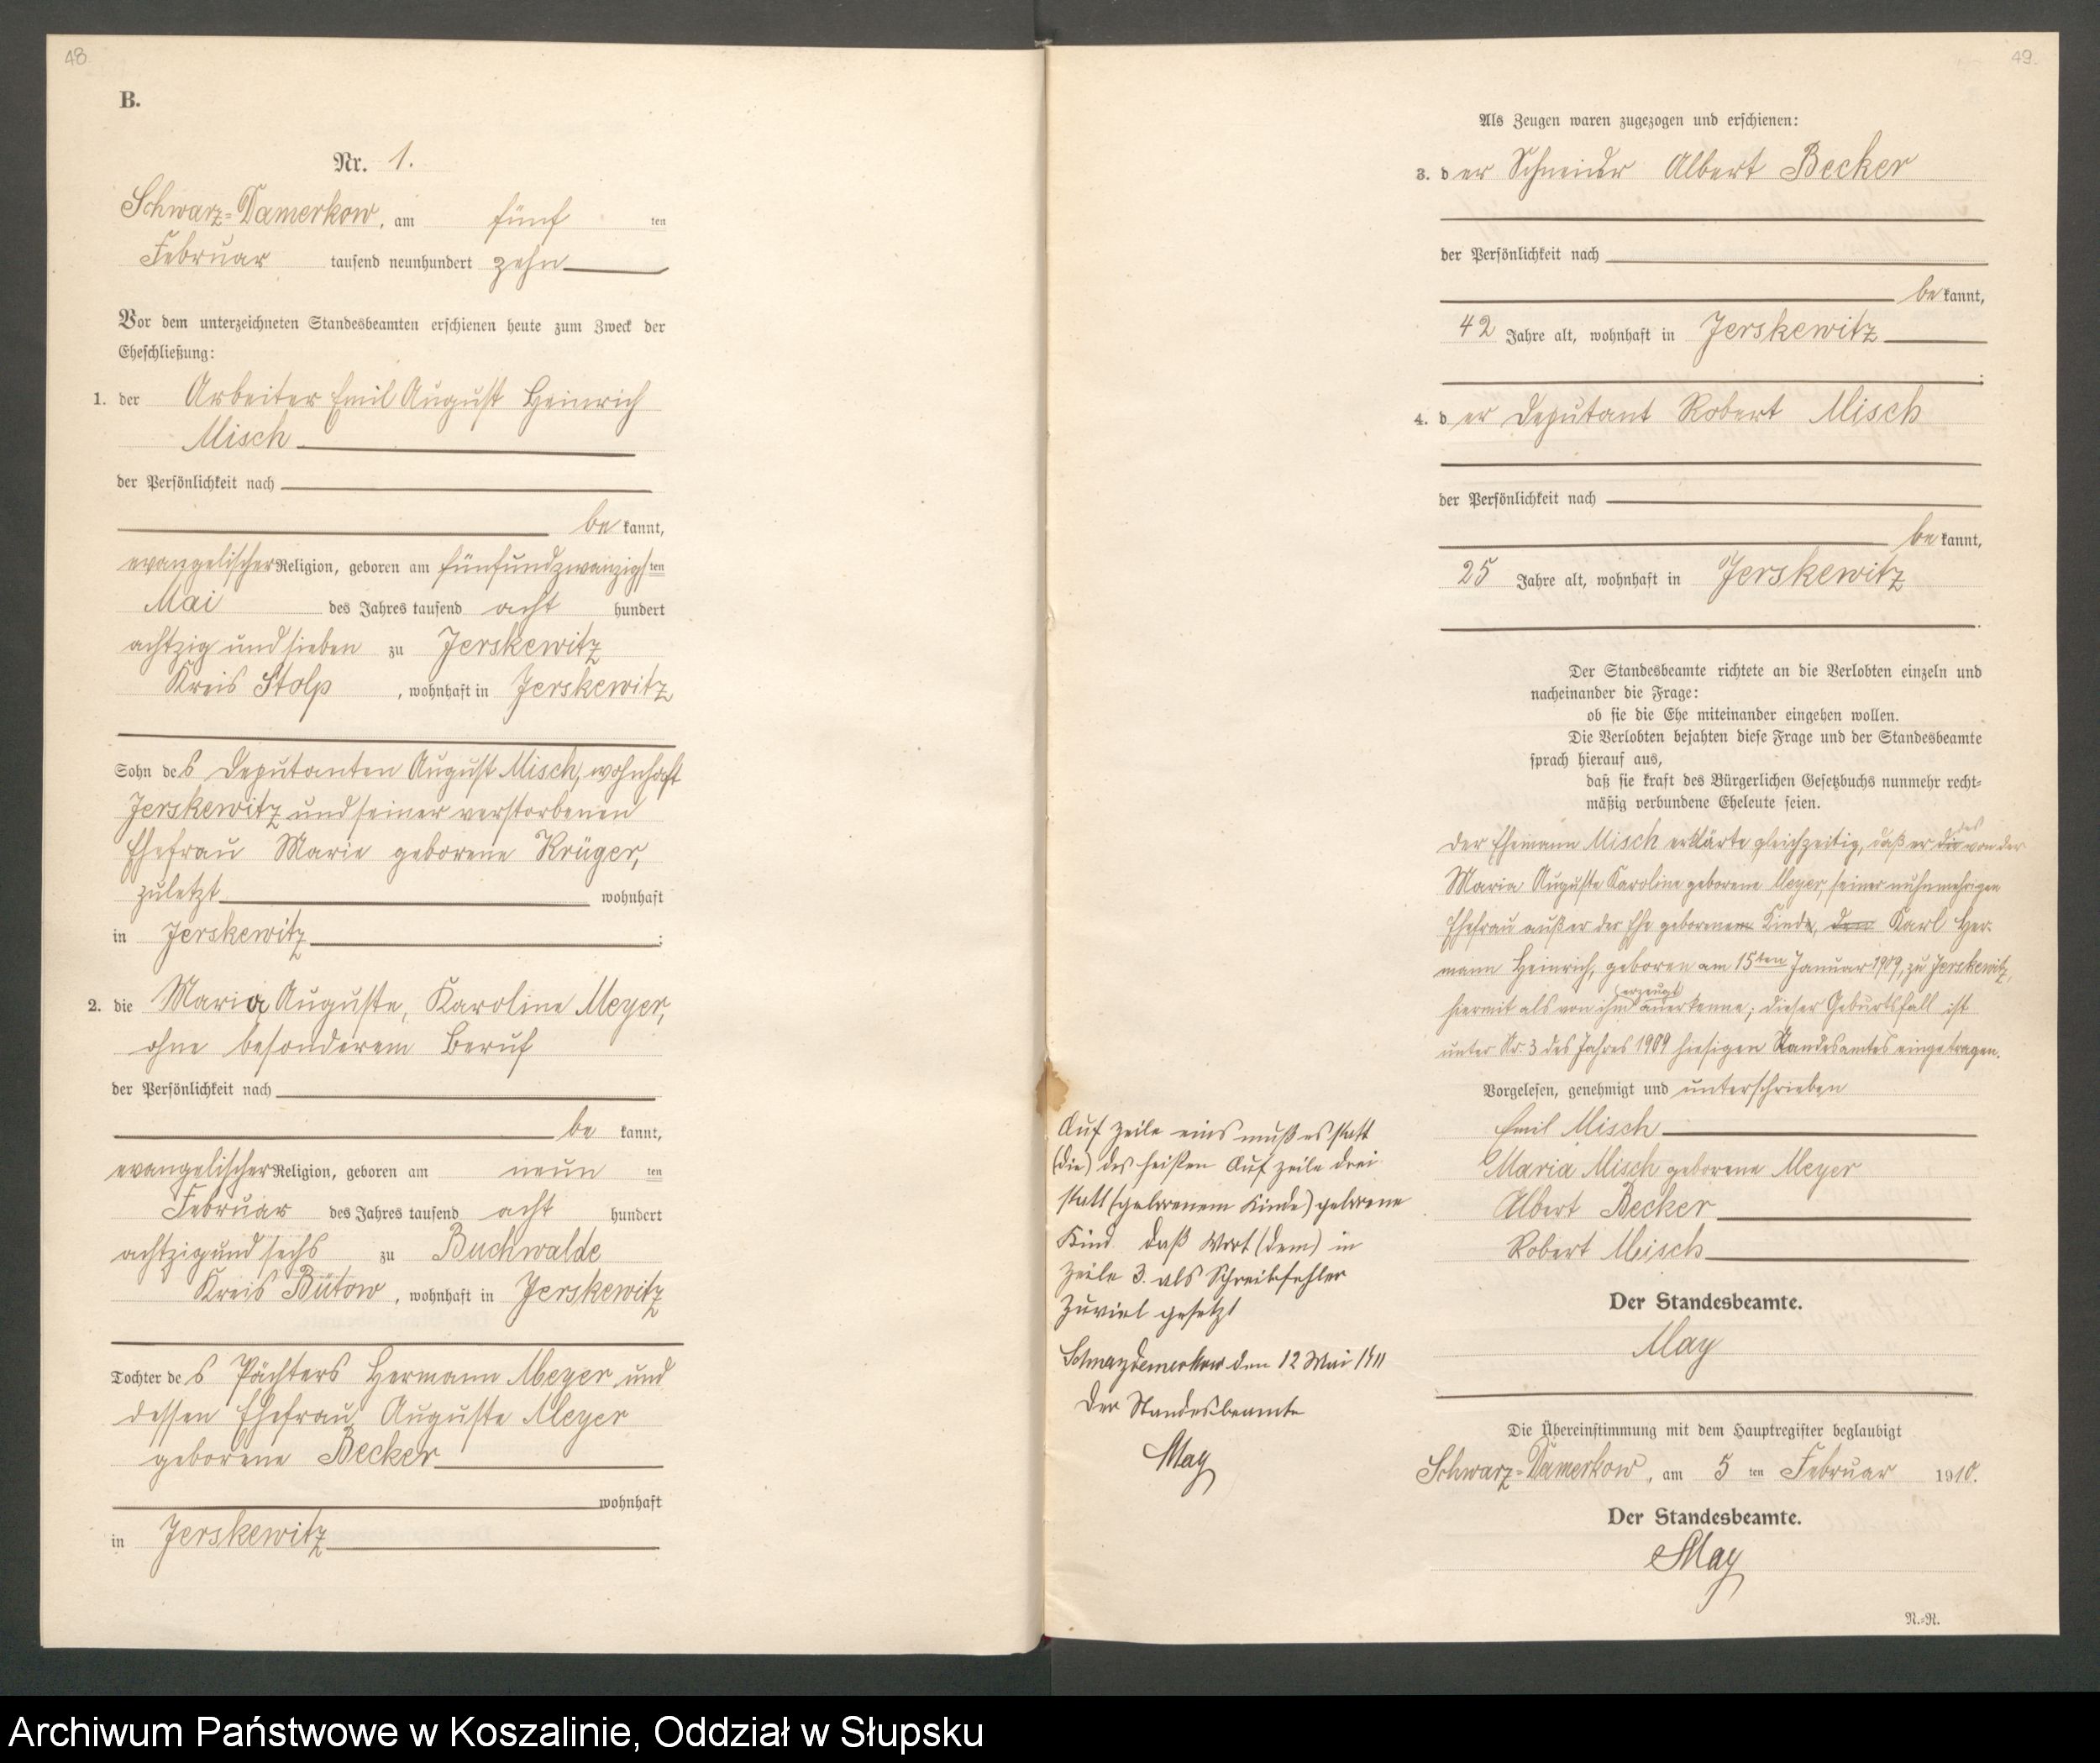 48
B.
Nr. 1.
Schwarz=Damerkow, am fünf ten
Februar tausend neunhundert zehn
Vor dem unterzeichneten Standesbeamten erschienen heute zum Zweck der
Eheschließung:
1. der Arbeiter Emil August Heinrich
Misch
der Persönlichkeit nach
be kannt,
evangelischer Religion, geboren am fünfundzwanzigsten
Mai des Jahres tausend acht hundert
achtzig und sieben zu Jerskewitz
Kreis Stolp, wohnhaft in Jerskewitz
Sohn des Deputanten August Misch, wohnhaft
Jerskewitz und seiner verstorbenen
Ehefrau Marie geborene Krüger,
zuletzt wohnhaft
in Jerskewitz;
2. die Maria Auguste, Karoline Meyer,
ohne besonderem Beruf
der Persönlichkeit nach
be kannt,
evangelischer Religion, geboren am neun ten
Februar des Jahres tausend acht hundert
achtzig und sechs zu Buchwalde
Kreis Bütow, wohnhaft in Jerskewitz
Tochter des Pächters Hermann Meyer und
dessen Ehefrau Auguste Meyer
geborene Becker
wohnhaft
in Jerskewitz
49.
Als Zeugen waren zugezogen und erschienen:
3. der Schneider Albert Becker
der Persönlichkeit nach
be kannt,
42 Jahre alt, wohnhaft in Jerskewitz
;
4. der Deputant Robert Misch
der Persönlichkeit nach
be kannt,
25 Jahre alt, wohnhaft in Jerskewitz
.
Der Standesbeamte richtete an die Verlobten einzeln und
nacheinander die Frage:
ob sie die Ehe miteinander eingehen wollen.
Die Verlobten bejahten diese Frage und der Standesbeamte
sprach hierauf aus,
daß sie kraft des Bürgerlichen Gesetzbuchs nunmehr recht=
mäßig verbundene Eheleute seien.
Der Ehemann Misch erklärte gleichzeitig, daß er die des von der
Maria Auguste Karoline geborene Meyer, seiner nuhnmehrigen
Ehefrau außer der Ehe geborenem Kinde, dem Karl Her-
mann Heinrich, geboren am 15ten Januar 1909, zu Jerskewitz,
hiermit als von ihm (erzeugt) anerkenne; dieser Geburtsfall ist
unter Nr. 3 des Jahres 1909 hiesigen Standesamtes eingetragen.
Vorgelesen, genehmigt und unterschrieben
Emil Misch
Maria Misch geborene Meyer
Albert Becker
Robert Misch
Der Standesbeamte.
May
Die Übereinstimmung mit dem Hauptregister beglaubigt
Schwarz=Damerkow, am 5 ten Februar 1910.
Der Standesbeamte.
May
N.=R.
Auf Zeile eins muß es statt
(die) des heißen Auf Zeile drei
statt (geborenem Kinde) geborene
Kind daß Wort (dem) in
Zeile 3. als Schreibfehler
Zuviel gesetzt
Schwarzdamerkow den 12 Mai 1911
Der Standesbeamte
May
Archiwum Państwowe w Koszalinie, Oddział w Słupsku